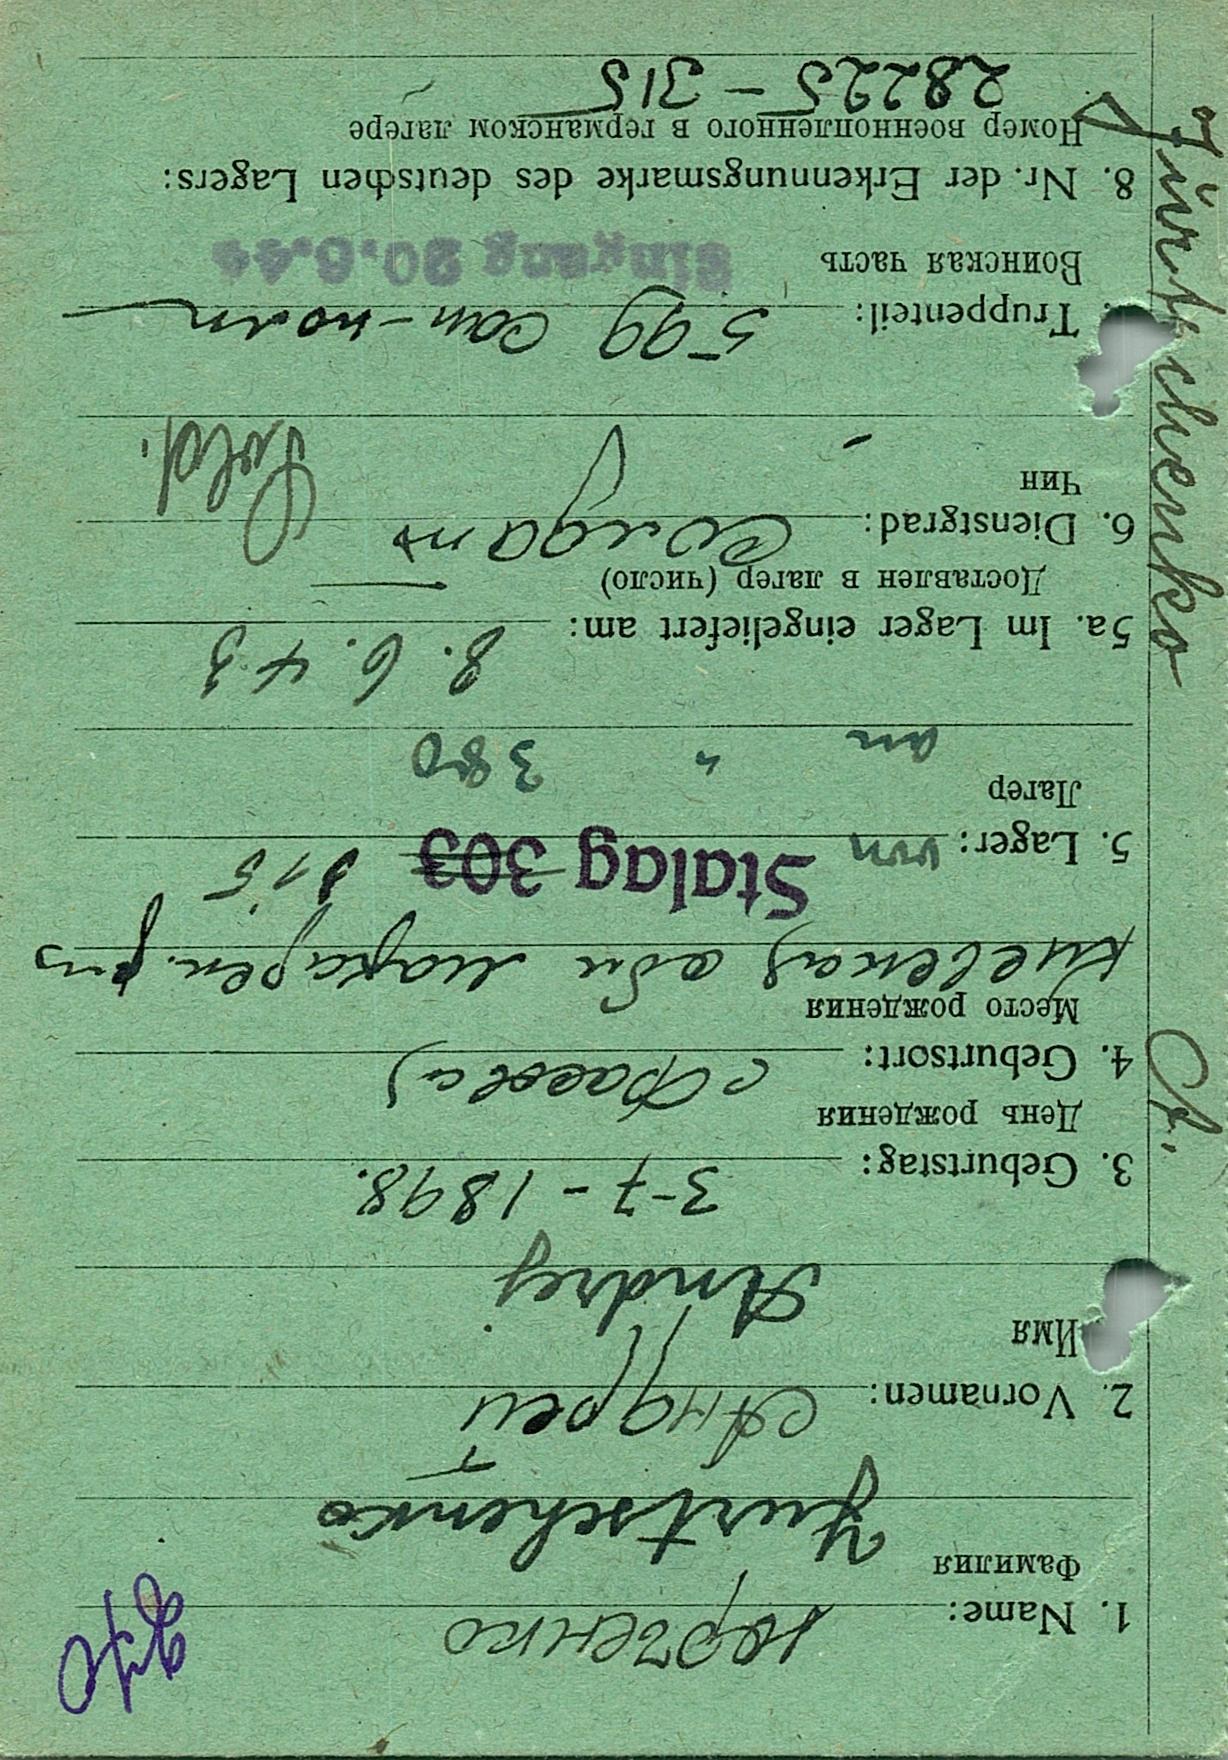 1. Name: Юрченко
Фамилия
Jurtschenko
2. Vornamen: Андрей
Имя
Andrej
3. Geburtstag: 3-7-1898.
День рождения
4. Geburtsort: с
Место рождения
киевская обл макаров. р-н
5. Lager: von Stalag 303 315
Лагер
an " 380
5a. Im Lager eingeliefert am: 8. 6. 43
Доставлен в лагер (число)
6. Dienstgrad: Солдат
Чин
Sold.
Truppenteil: 599
Воинская часть
Eingang 20.6.44
8. Nr. der Erkennungsmarke des deutschen Lagers:
Номер военнопленного в германском лагере
28225 - 315
Jürtschenko A.